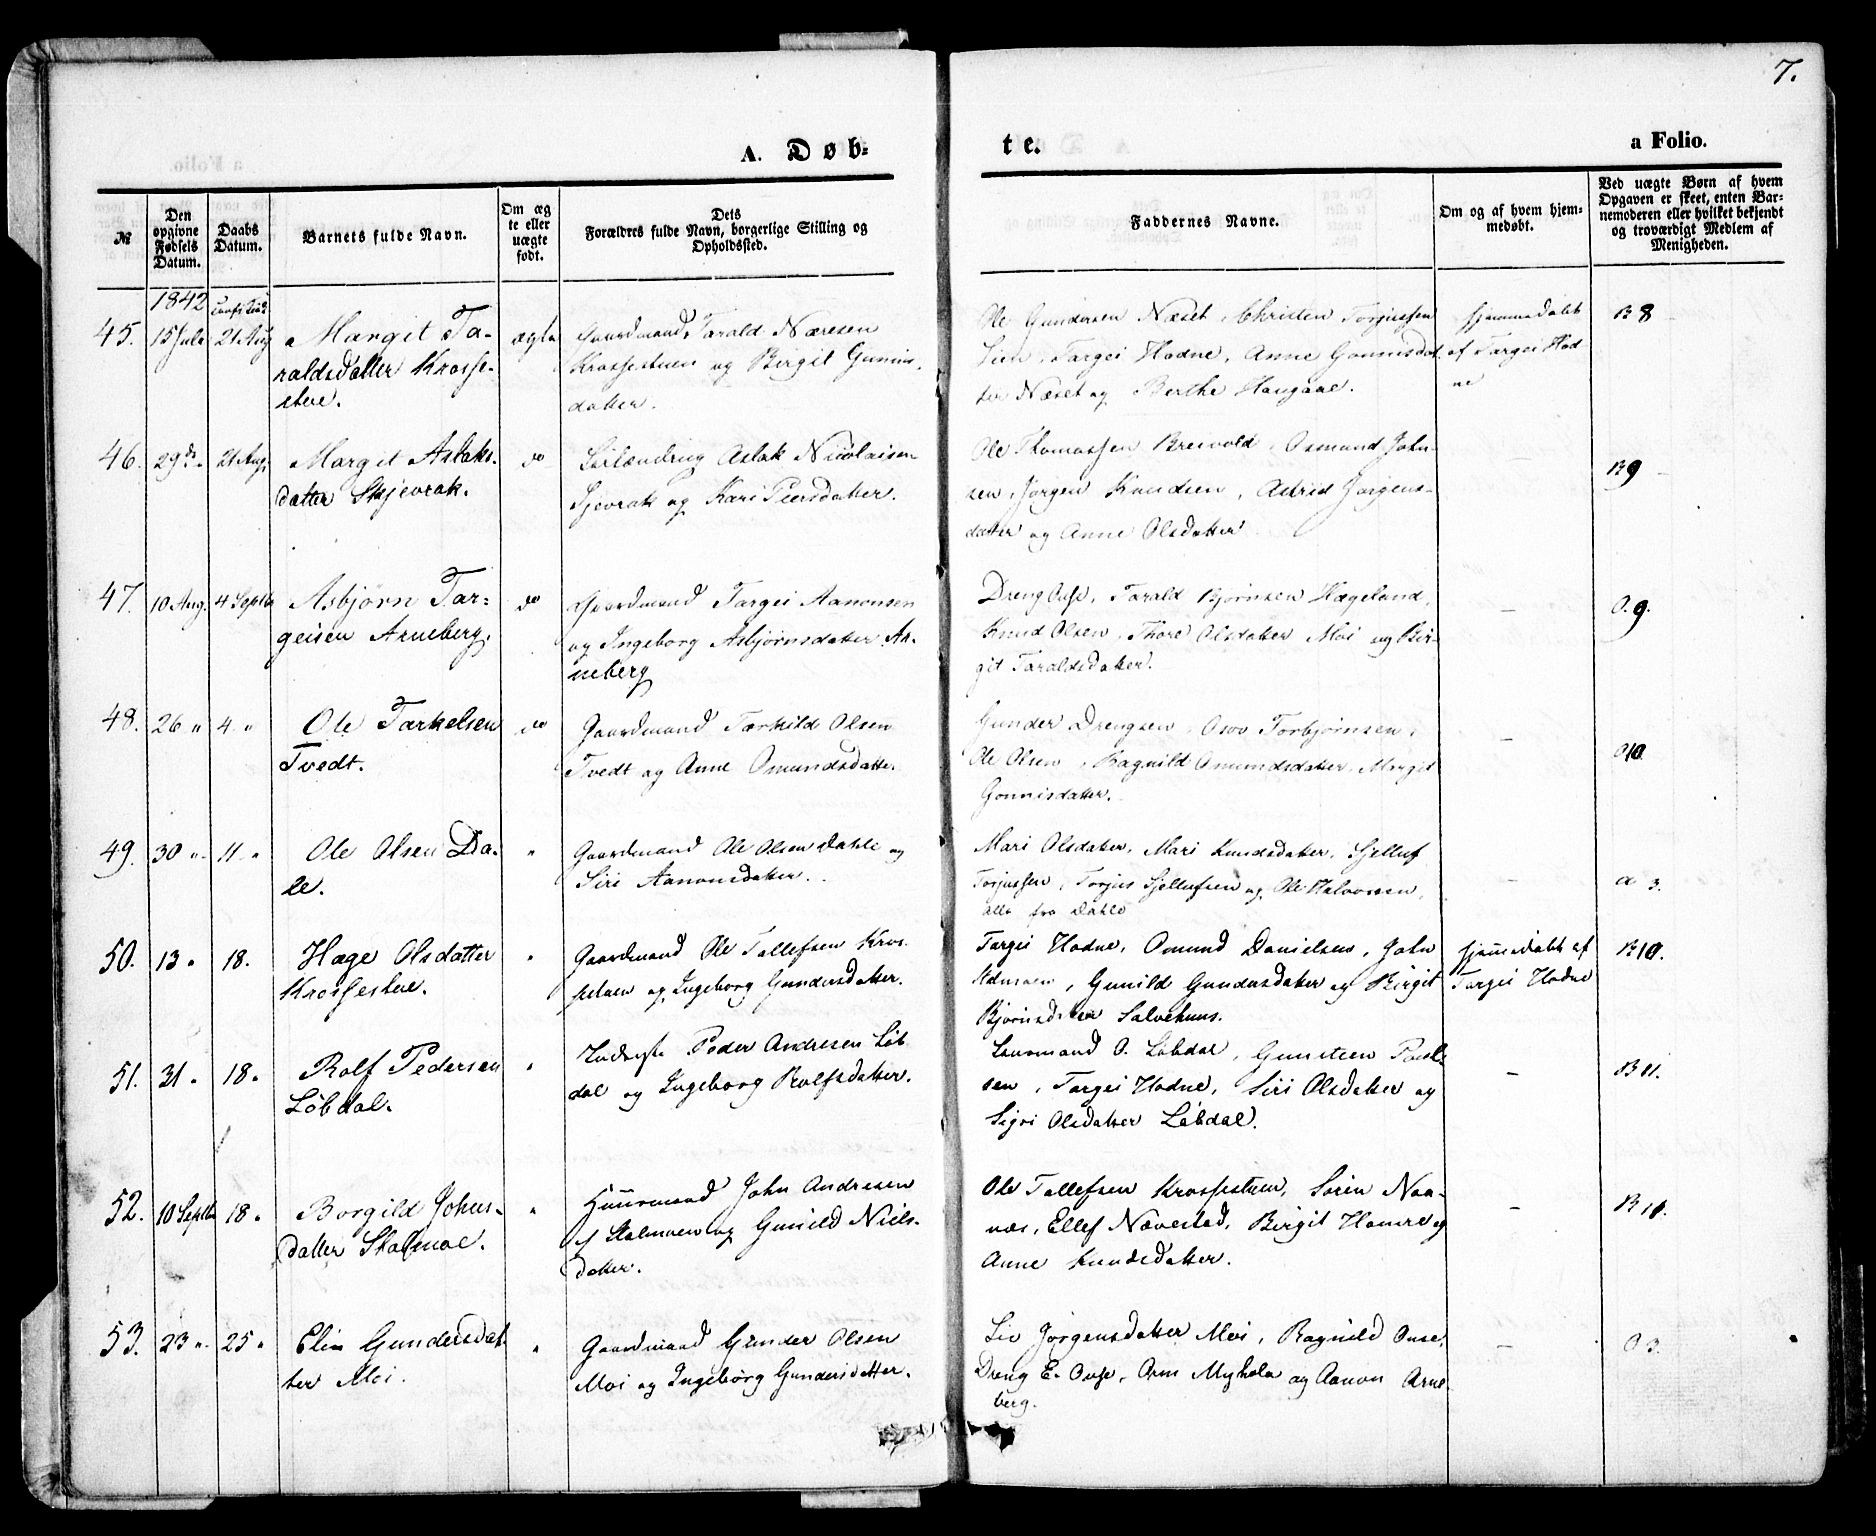 7.
A. Døb-
te.
a Folio.
№
Den opgivne Fødsels Datum.
Daabs Datum.
Barnets fulde Navn.
Om ægte eller uægte født.
Dets Forældres fulde Navn, borgerlige Stilling og Opholdssted.
Faddernes Navne.
Om og af hvem hjemmedøbt.
Ved uægte Børn af hvem Opgaven er skeet, enten Barnemoderen eller hvilket bekjendt og troværdigt Medlem af Menigheden.
1842
45. 15 Juli 21 Aug Margit Ta-
raldsdatter Krosse-
stue.
ægte
Gaardmand Tarald Næresen
Krossestuen og Birgit Gunius-
datter.
Ole Gundersen Næset, Christen Torjussen
Lien, Targei Hodne, Anne Gonnisdat
ter Næset og Berthe Haugaae.
hjemmedøbt
af Targei Hod
ne
B 8
46. 29 do 21 Aug. Margit Aslaks-
datter Skjevrak.
do
Aslak Nicolaisen
Sjevrak og Kari Peersdatter.
Ole Thomassen Breivold, Osmund John-
sen, Jørgen Knudsen, Astrid Jørgens-
datter og Anne Olsdatter
B 9
47. 10 Aug. 4 Septbr Asbjørn Tar-
geisen Arneberg.
do
Gaardmand Targei Aanonsen
og Ingeborg Asbjørnsdatter Ar-
neberg
Dreng Ouse, Tarald Bjørnsen Hægeland,
Knud Olsen, Thore Olsdatter Moi og Bir-
git Taraldsdatter.
O. 9.
48. 26 " 4 " Ole Tærkelsen
Tvedt.
do
Gaardmand Tærkild Olsen
Tvedt og Anne Omundsdatter
Gunder Drengsen, Osov Torbjørnsen,
Ole Olsen, Ragnild Omundsdatter, Margit
Gonnisdatter.
O 10
49. 30 " 11 " Ole Olsen Da-
le.
"
Gaardmand Ole Olsen Dahle og
Siri Aanonsdatter.
Mari Olsdatter, Mari Knudsdatter, Sjelluf
Torjussen, Torjus Sjellufsen og Ole Halvorsen,
alle fra Dahle
a 3.
50. 13 " 18. Hæge Olsdatter
Krossestue.
"
Gaardmand Ole Tallefsen Kros-
stuen og Ingeborg Gundersdatter.
Targei Hodne, Omund Danielsen, John
Gunild Gundersdatter og Birgit
Bjørnsdatter Salvehuus.
hjemmedøbt af
Targei Hodne
B 10.
51. 31 " 18 " Rolf Pedersen
Løbdal.
"
Peder Andresen Løb
dal og Ingeborg Rolfsdatter.
O. Løbdal, Gunsteen Poul-
sen, Targei Hodne, Siri Olsdatter og
Sigri Olsdatter Løbdal.
B 11.
52. 10 Septbr 18 " Borgild Johns-
datter Skolmoe.
"
Huusmand John Andresen
Skolmoen og Gunild Niels-
datter.
Ole Tallefsen Krossestuen, Søren Naa-
næs, Ellef Nævestad, Birgit Homre og
Anne Knudsdatter.
B 10.
53. 23 " 25 " Elin Gundersdat
ter Moi.
"
Gaardmand Gunder Olsen
Moi og Ingeborg Gundersdatter.
Liv Jørgensdatter Moi, Ragnild Ouse,
Dreng E. Ouse, Arne
berg.
O 3.